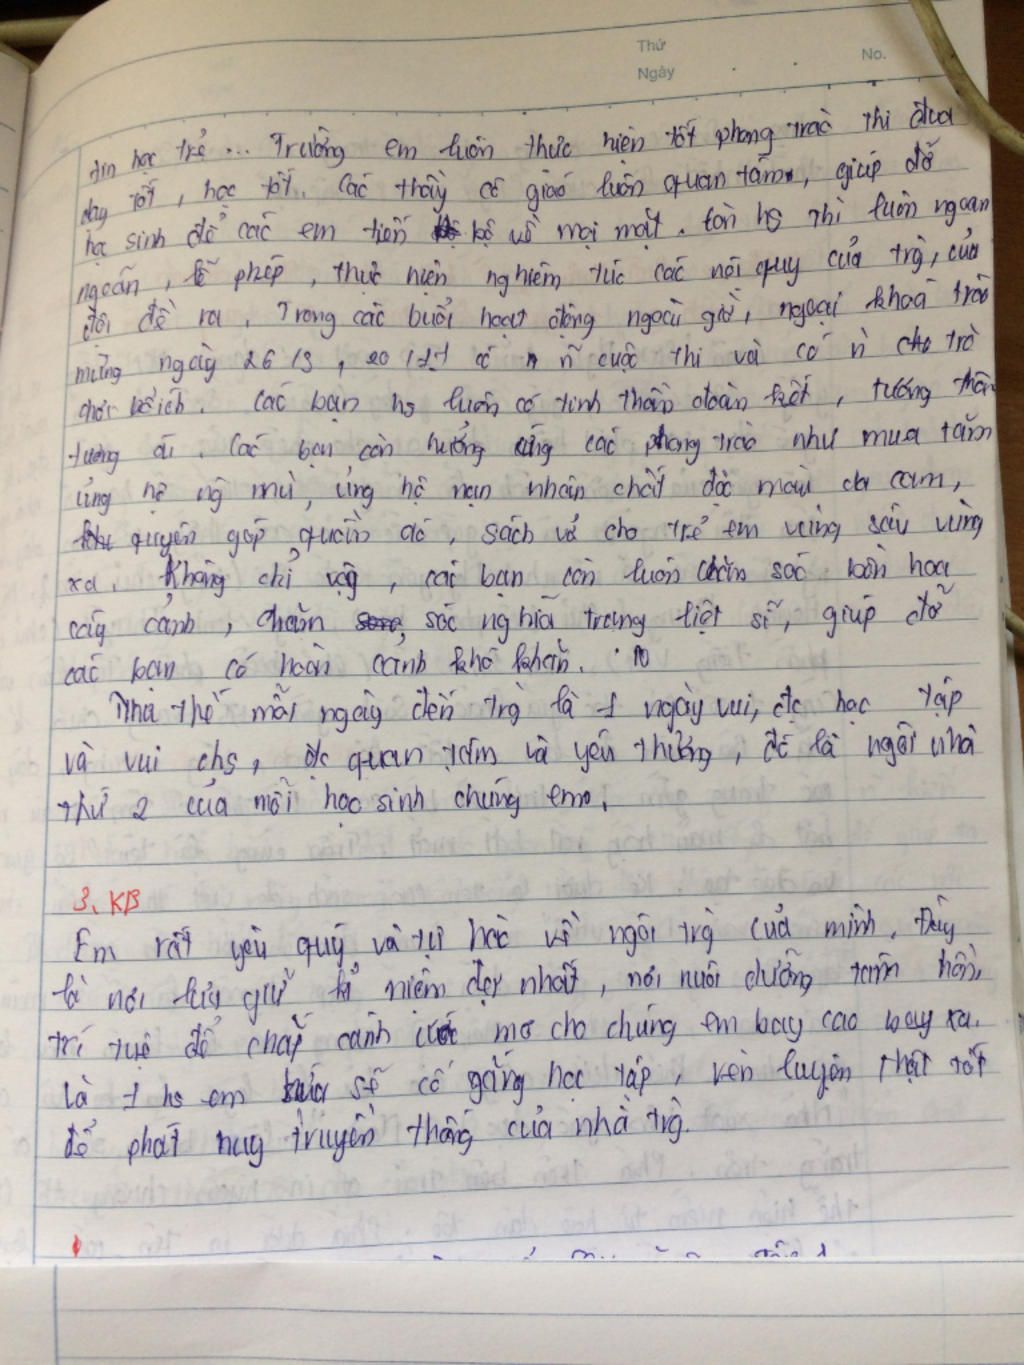 Thứ
Ngày
No.
tin học trẻ ... Trường em luôn thức hiện tốt phong trào thi đua
dạy tốt, học tốt. Các thầy cô giáo luôn quan tâm, giúp đỡ
học sinh để các em tiến bộ về mọi mặt. Còn hs thì luôn ngoan
ngoãn, lễ phép, thực hiện nghiêm túc các nội quy của trg, của
đội đề ra. Trong các buổi hoạt động ngoài giờ, ngoại khoá trào
mừng ngày 26/3, 20/11 có n cuộc thi và có n trò
chơi bổ ích. Các bạn hs luôn có tinh thần đoàn kết, tương thân
tương ái. Các bạn còn hưởng ứng các phong trào như mua tăm
ủng hộ ng mù, ủng hộ nạn nhân chất độc màu da cam,
quyên góp quần áo, sách vở cho trẻ em vùng sâu vùng
xa. Không chỉ vậy, các bạn còn luôn chăm sóc bồn hoa
cây cảnh, chăm sóc nghĩa trang liệt sĩ, giúp đỡ
các bạn có hoàn cảnh khó khăn.
Như thế mỗi ngày đến trg là 1 ngày vui, đc học tập
và vui chs, đc quan tâm và yêu thương, đó là ngôi nhà
thứ 2 của mỗi học sinh chúng em.
3. KB
Em rất yêu quý và tự hào về ngôi trg của mình. Đây
là nơi lưu giữ kỉ niệm đẹp nhất, nơi nuôi dưỡng tâm hồn,
trí tuệ để chắp cánh ước mơ cho chúng em bay cao bay xa.
Là 1 hs em sẽ cố gắng học tập, rèn luyện thật tốt
để phát huy truyền thống của nhà trg.